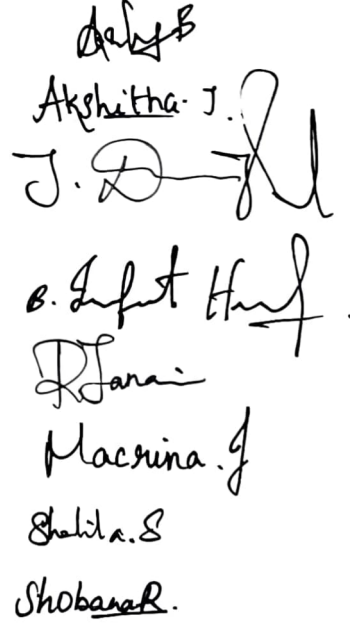 Akshitha. J.
J. D
B. Infant
R Janani
Macrina. J
Shalila. S
Shobana R.